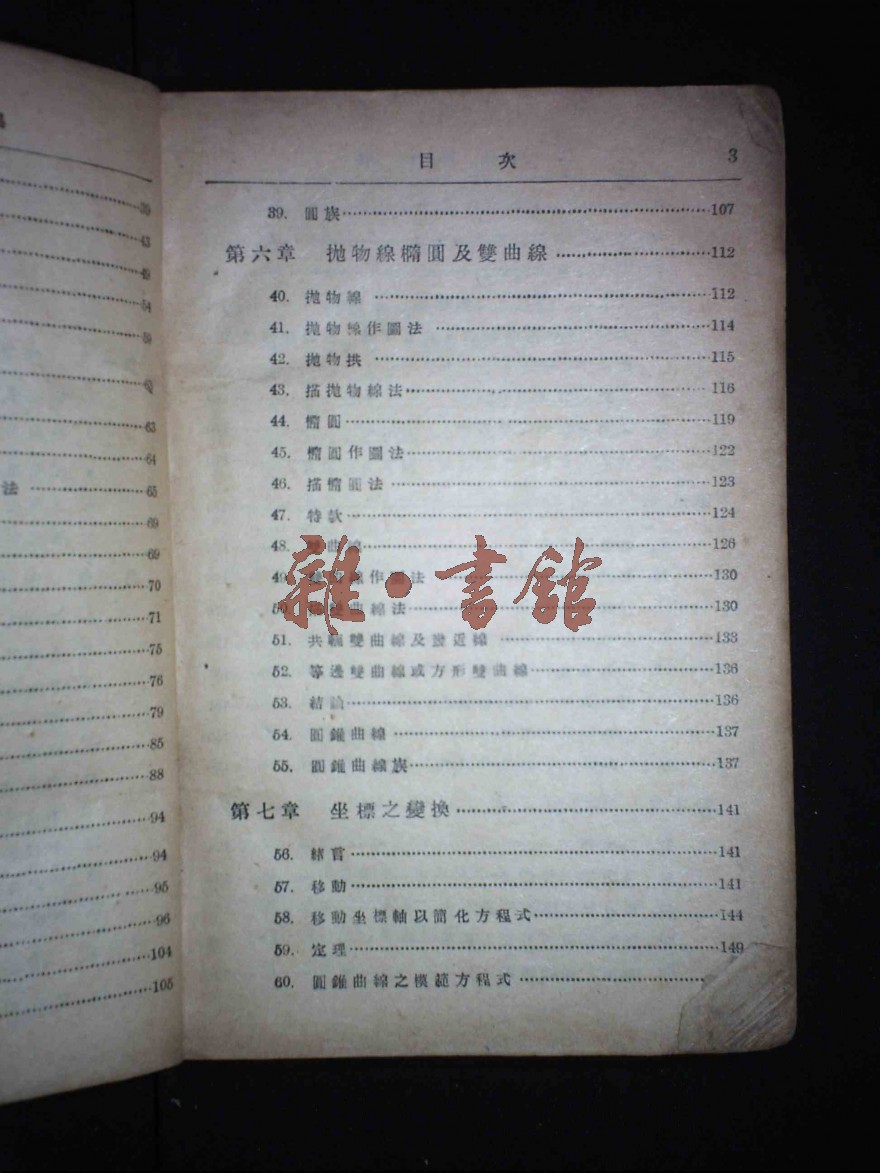 39
43
49
54
59
62
63
64
法 65
69
69
70
71
75
76
79
85
88
94
94
95
96
104
105
目 次 3
39. 圓族 107
第六章 拋物線橢圓及雙曲線 112
40. 拋物線 112
41. 拋物線作圖法 114
42. 拋物拱 115
43. 描拋物線法 116
44. 橢圓 119
45. 橢圓作圖法 122
46. 描橢圓法 123
47. 特款 124
48. 雙曲線 126
49. 雙曲線作圖法 130
50. 描雙曲線法 130
雜·書館
51. 共軛雙曲線及漸近線 133
52. 等邊雙曲線或方形雙曲線 136
53. 結論 136
54. 圓錐曲線 137
55. 圓錐曲線族 137
第七章 坐標之變換 141
56. 緒言 141
57. 移動 141
58. 移動坐標軸以簡化方程式 144
59. 定理 149
60. 圓錐曲線之模範方程式